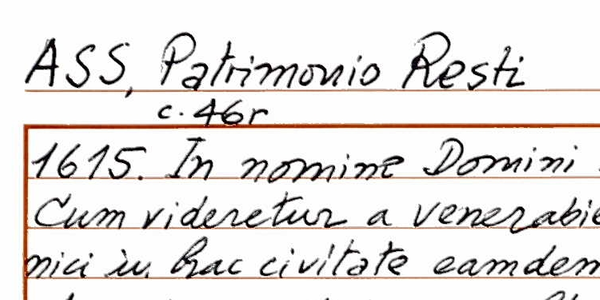 ASS, Patrimonio Resti
c. 46r
1615. In nomine Domini
Cum videretur a venerabi
nici in hac civitate eamdem